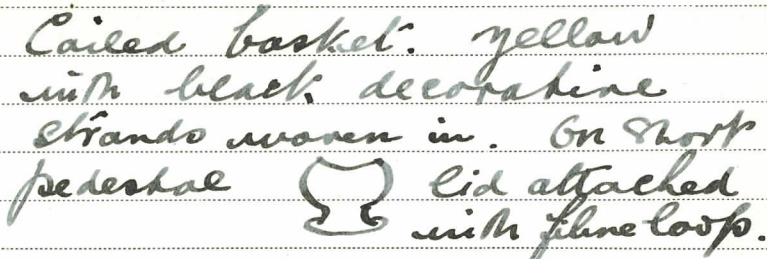 Coiled basket. Yellow
with black decorative
strands woven in. On short
pedestal lid attached
with fibre loop.